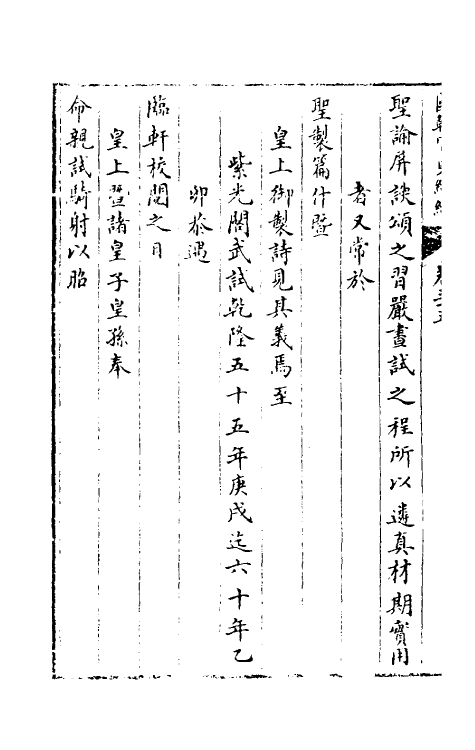 聖論屏諛頌之習嚴畫試之程所以遴真材期實用
者又常於
聖製篇什暨
皇上御製詩見其義焉至
紫光閣武試乾隆五十五年庚戌迄六十年乙
卯恭遇
臨軒校閱之日
皇上暨諸皇子皇孫奉
命親試騎射以昭